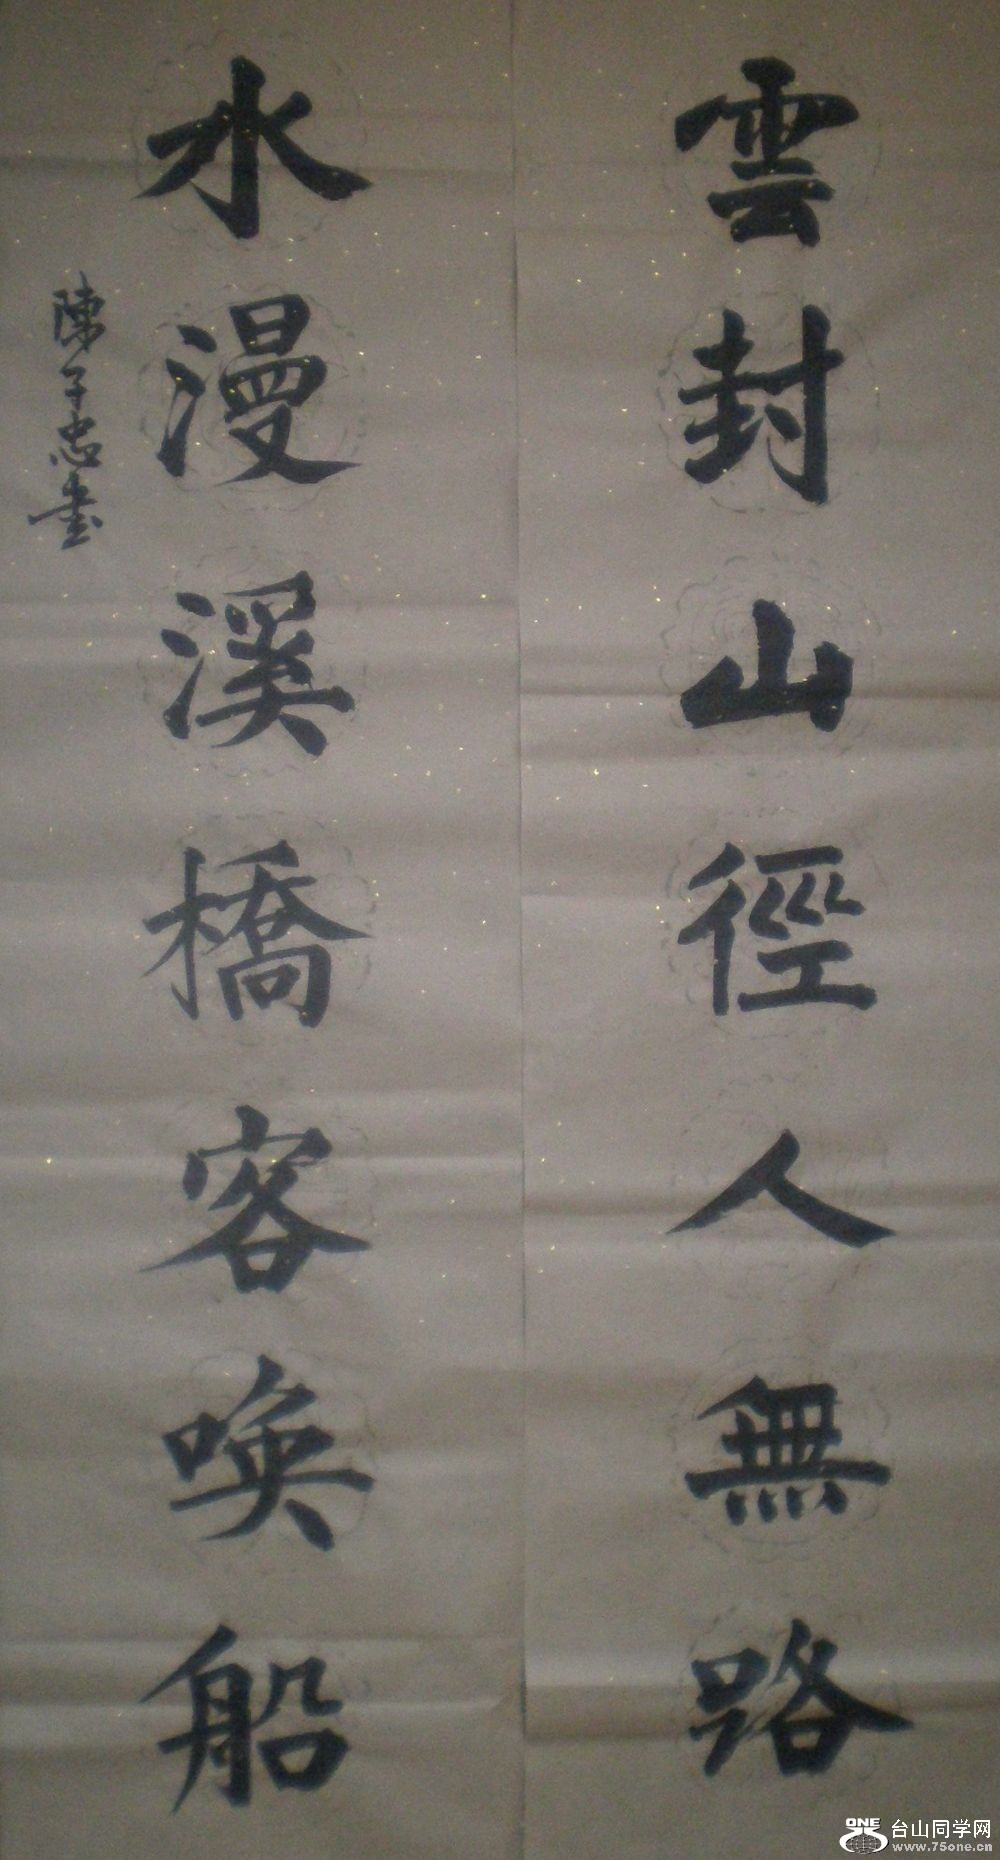 雲封山徑人無路
水漫溪橋客喚船
陳子忠書
ONE 台山同学网
www.75one.cn